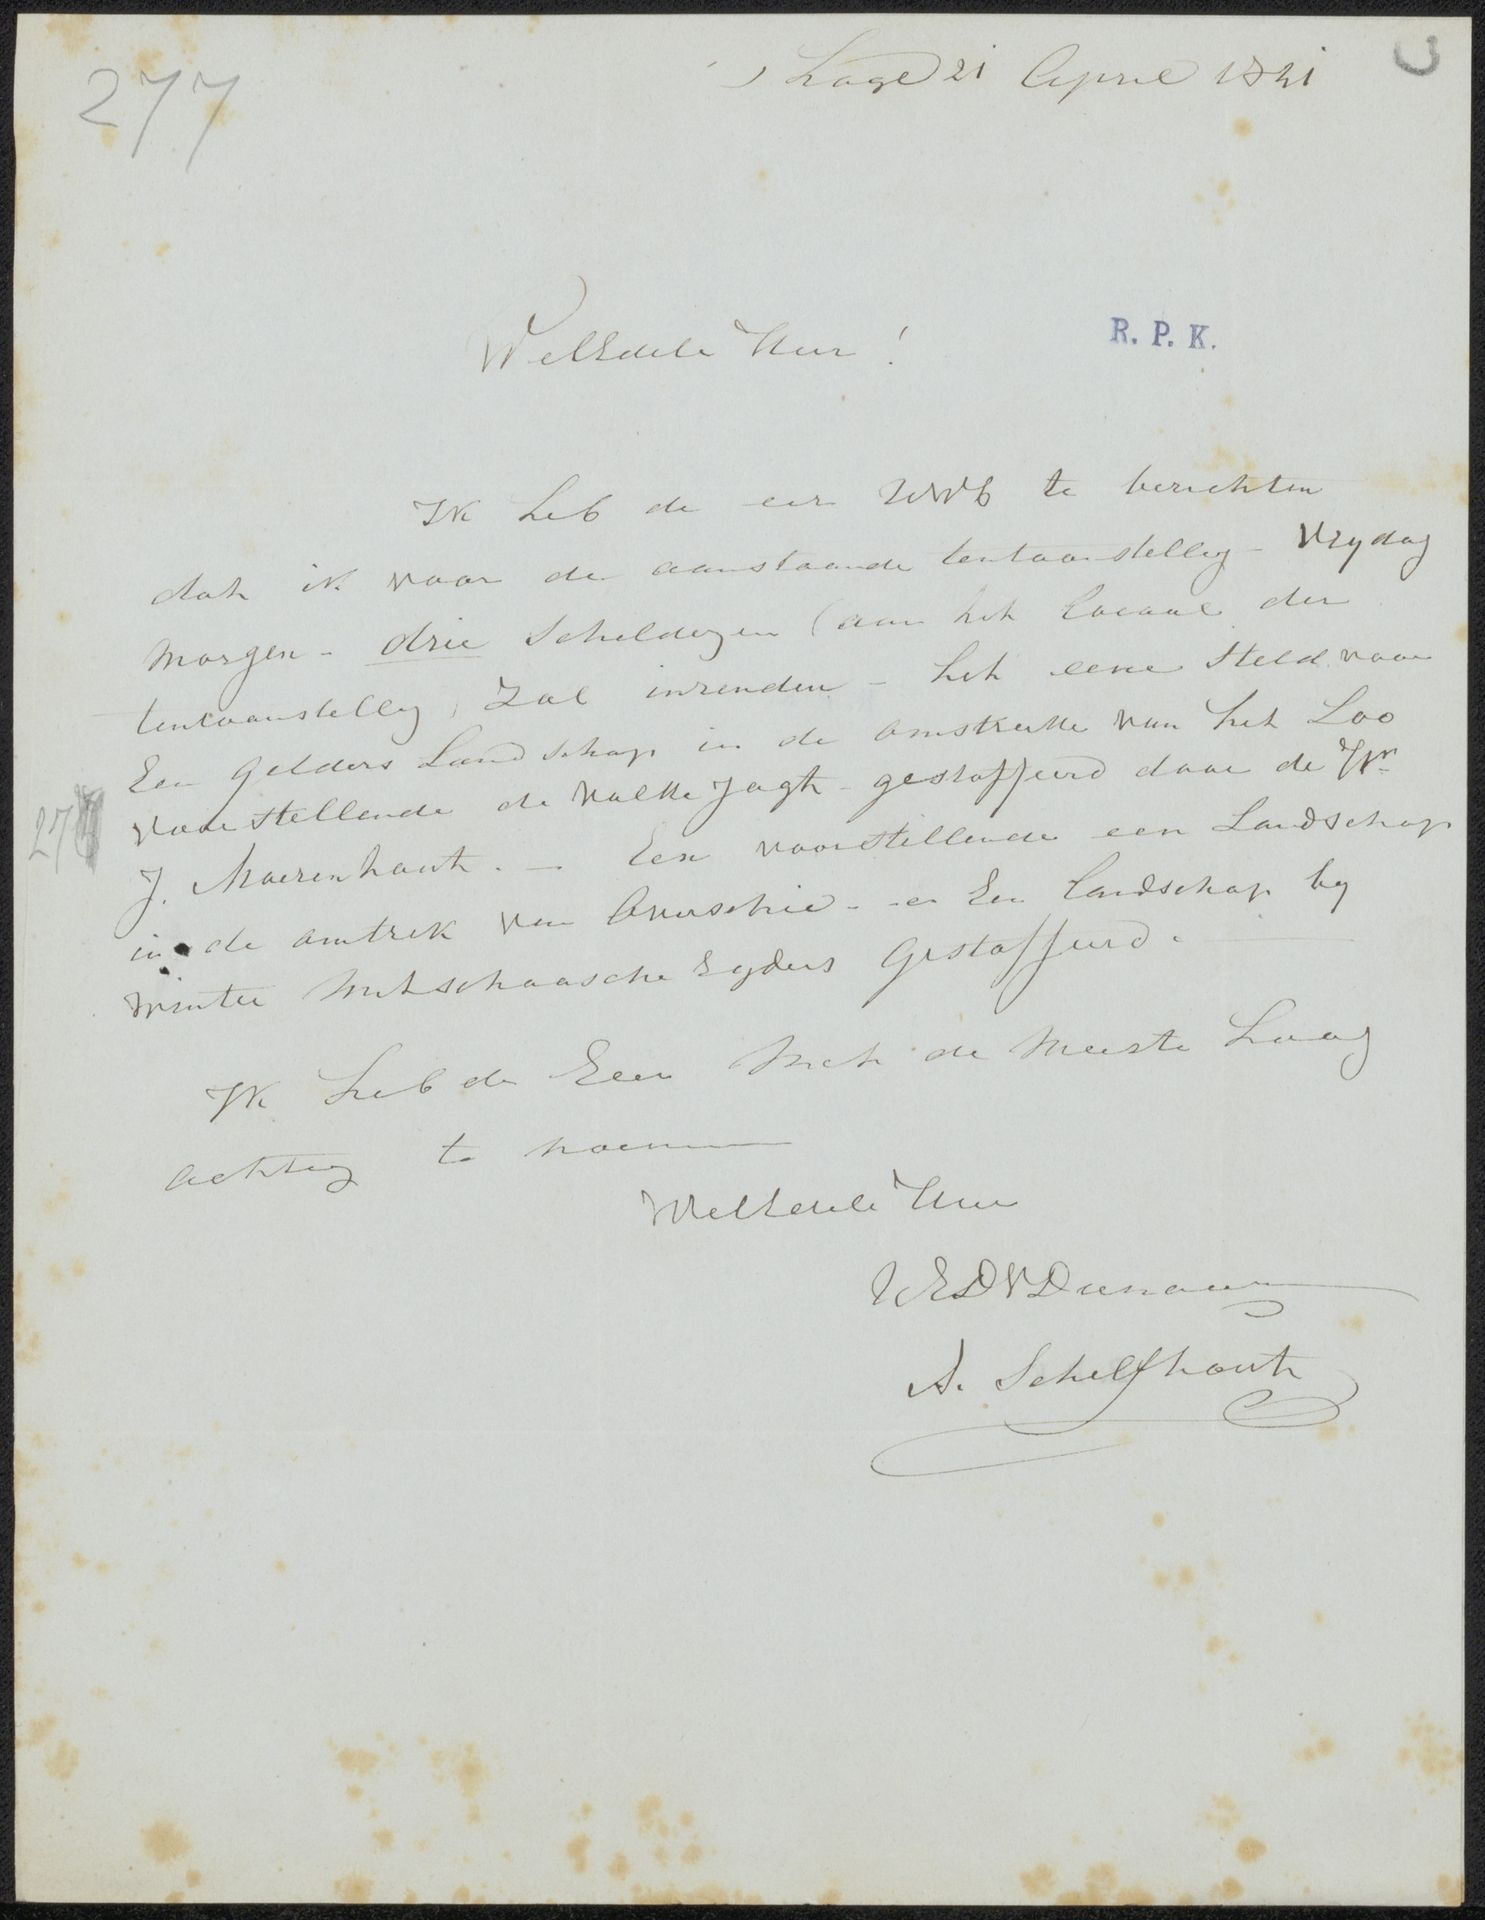 277
's Hage 21 April 1841
WelEdele Heer!
R. P. K.
Ik heb de eer UWE te berichten
dat ik voor de aanstaande tentoonstelling - Vrydag
morgen - drie Schilderyen (aan het locaal der
tentoonstelling) zal inzenden - het eene steld voor
Een Gelders Landschap in de omstreke van het Loo
voorstellende de Valke Jagt - gestoffeerd door de Hr
J. Moerenhout. - Een voorstellende een Landschap
in de omtrek van Overschie - en Een landschap by
winter met schaatsche Ryders Gestoffeerd.
Ik heb de Eer met de meeste Hoog
achting te noemen
WelEdele Heer
UEDWDienaar
A. Schelfhout